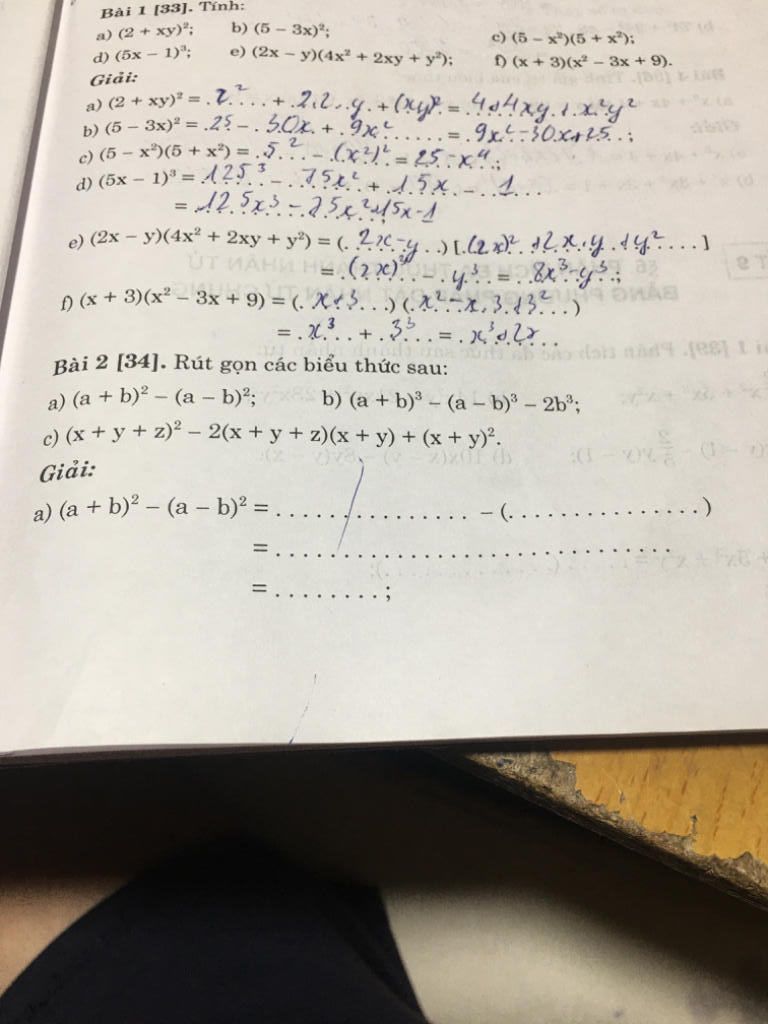 Bài 1 [33]. Tính:
a) (2 + xy)²; b) (5 – 3x)²; c) (5 – x²)(5 + x²);
d) (5x – 1)³; e) (2x – y)(4x² + 2xy + y²); f) (x + 3)(x² – 3x + 9).
Giải:
a) (2 + xy)² = 2² + 2.2.y + (xy)² = 4+4xy+x²y²
b) (5 – 3x)² = 25 - 30x + 9x² = 9x²-30x+25;
c) (5 – x²)(5 + x²) = 5² - (x²)² = 25-x⁴;
d) (5x – 1)³ = 125³ - 75x² + 15x - 1
= 125x³ - 75x²+15x-1
e) (2x – y)(4x² + 2xy + y²) = (2x-y) [(2x)²+2x.y+y²]
= (2x)³ - y³ = 8x³-y³;
f) (x + 3)(x² – 3x + 9) = (x+3) (x²-x.3+3²)
= x³ + 3³ = x³+27
Bài 2 [34]. Rút gọn các biểu thức sau:
a) (a + b)² – (a – b)²; b) (a + b)³ – (a – b)³ – 2b³;
c) (x + y + z)² – 2(x + y + z)(x + y) + (x + y)².
Giải:
a) (a + b)² – (a – b)² = ............... – (...............)
= ..............................
= ........;